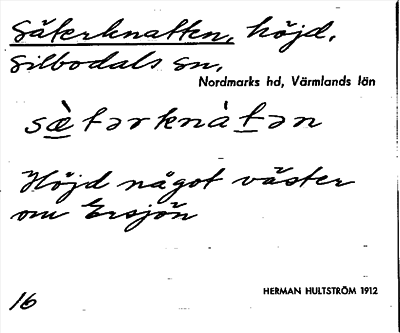 Säterknatten, höjd,
Silbodals sn,
Nordmarks hd, Värmlands län
sæ̀tərknàtən
Höjd något väster
om Ersjön
HERMAN HULTSTRÖM 1912
16